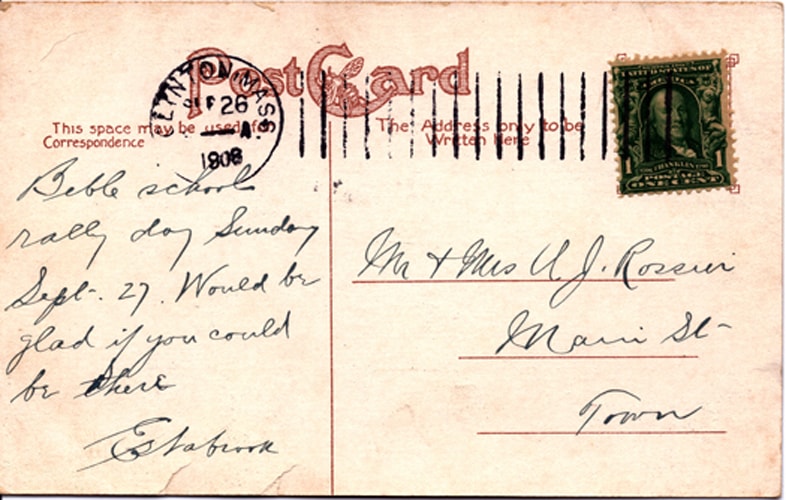 Post Card
CLINTON, MASS
SEP 26
A
1908
This space may be used for
Correspondence
The Address only to be
Written Here
UNITED STATES OF
AMERICA
1 FRANKLIN 1
POSTAGE
ONE CENT
Bible school
rally day Sunday
Sept. 27. Would be
glad if you could
be there
Estabrook
Mr & Mrs A. J. Rossier
Main St
Town